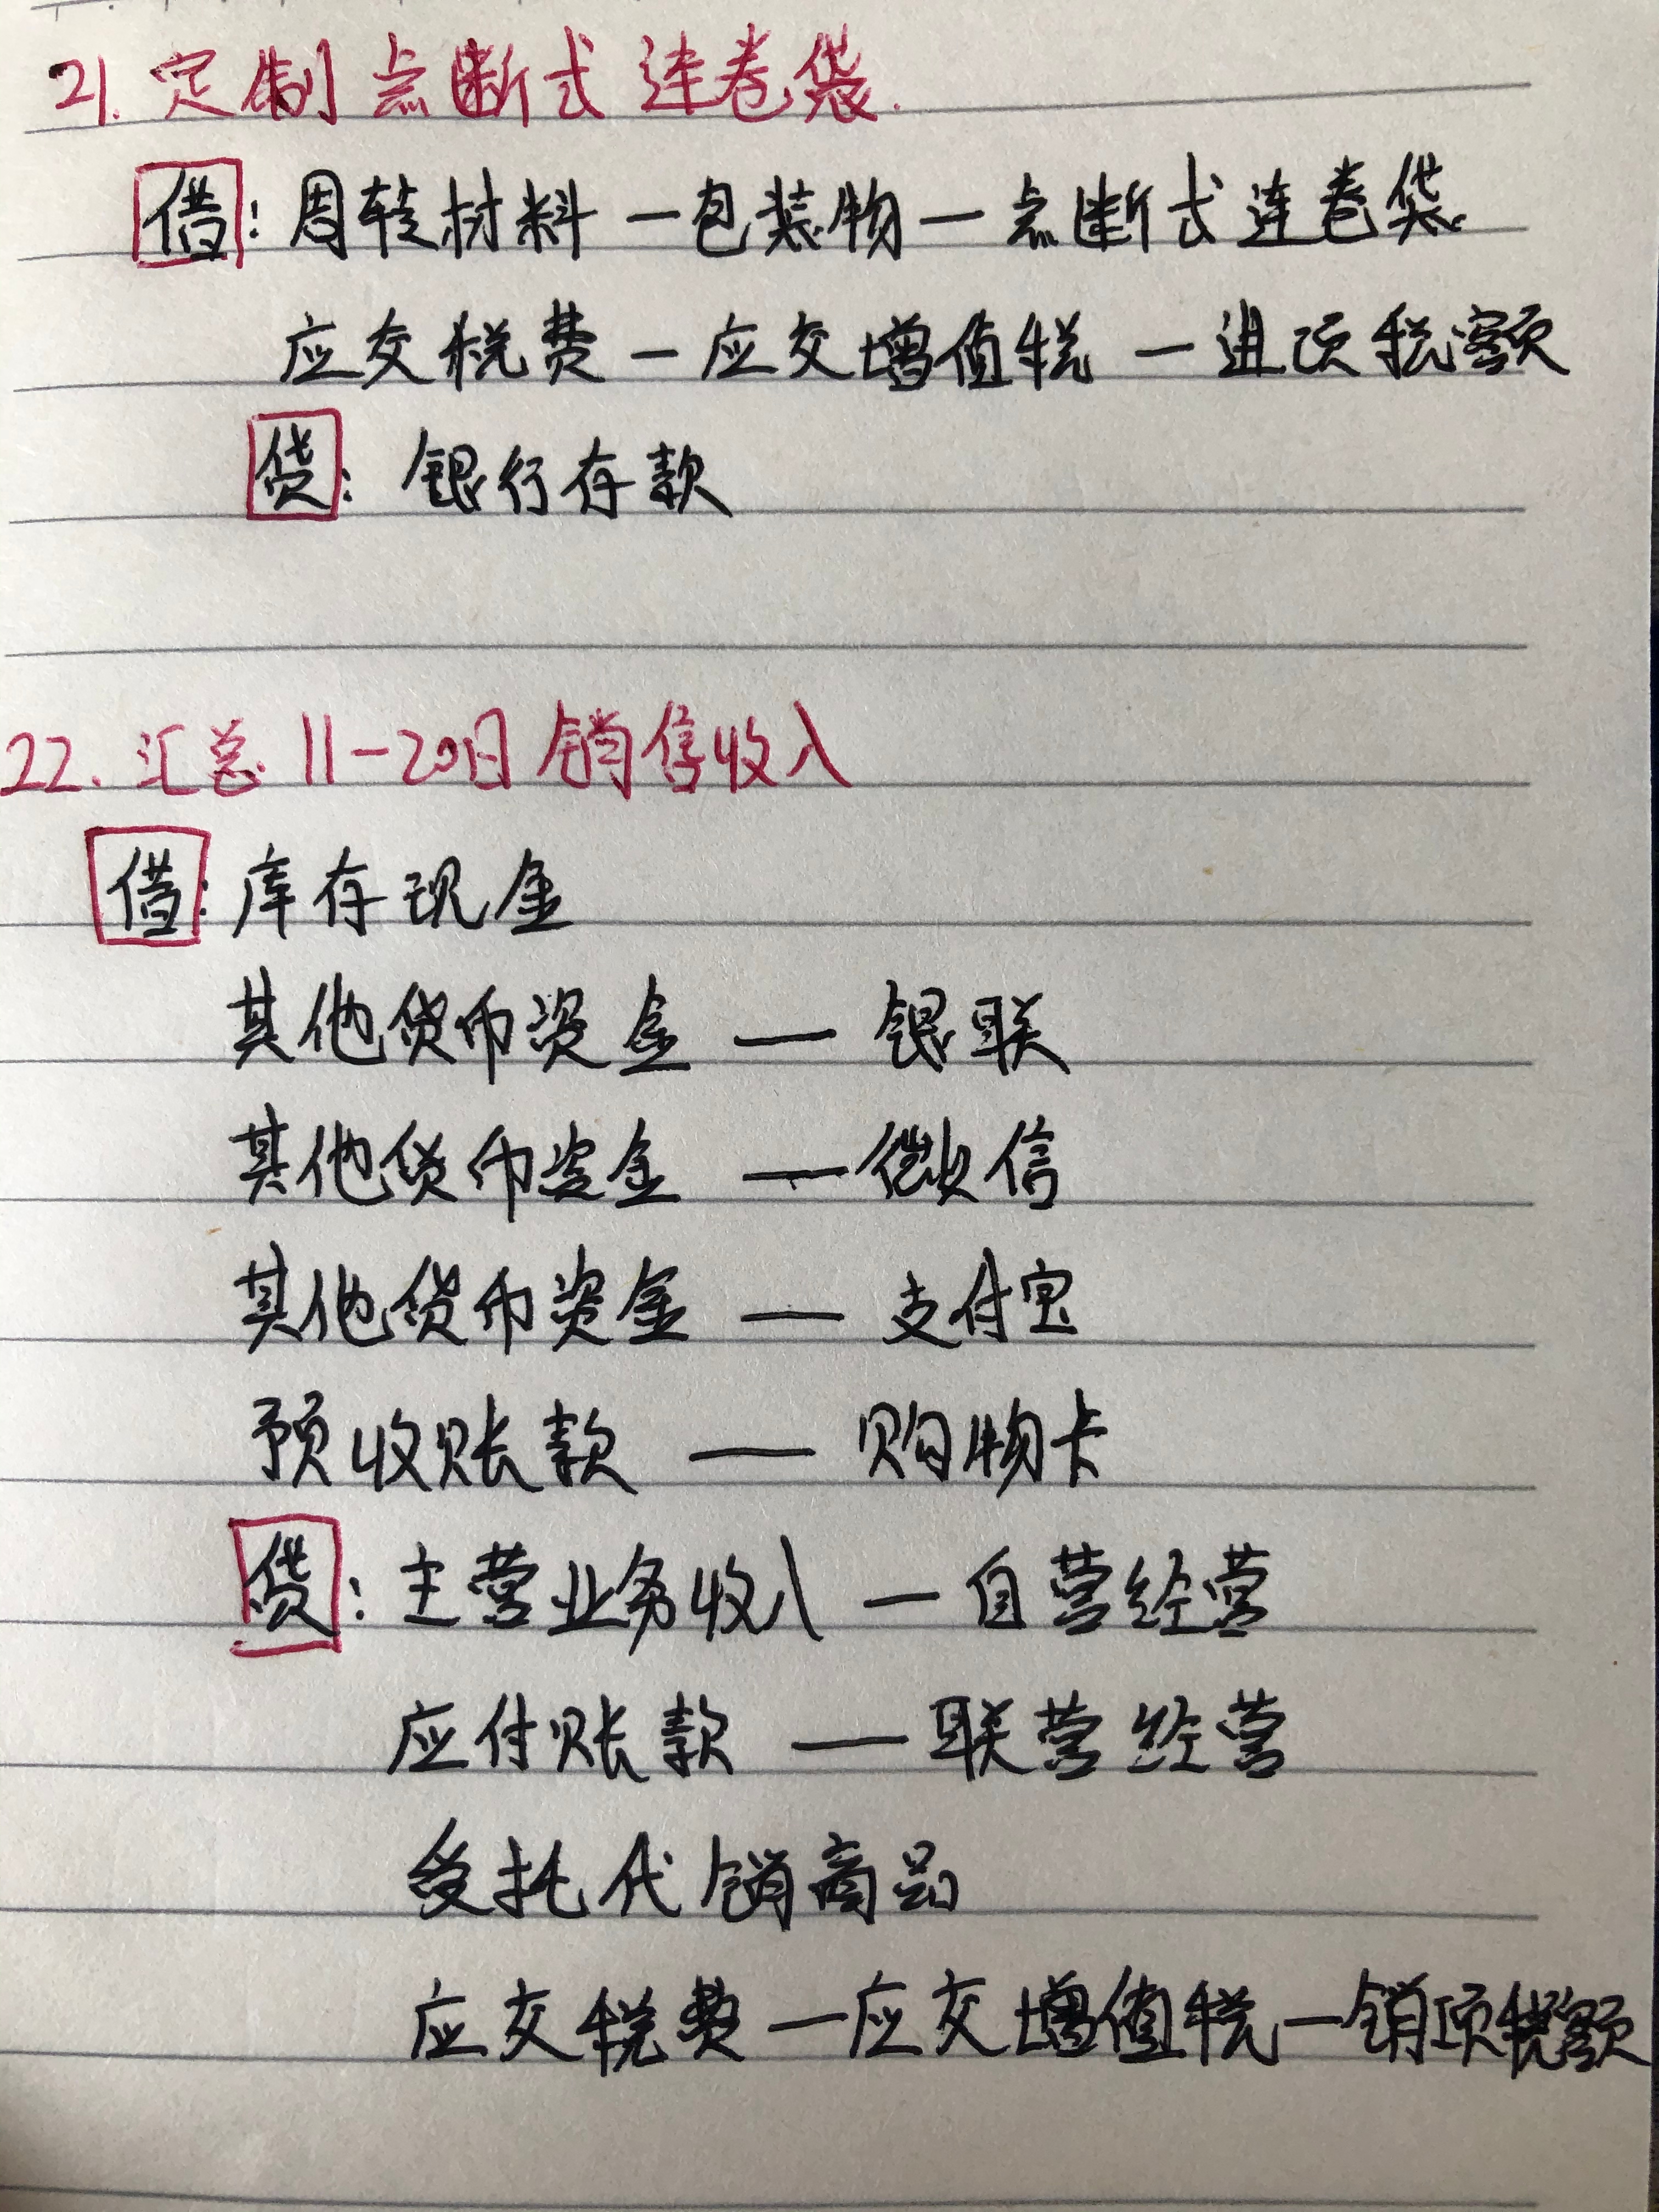 21. 定制点断式连卷袋.
借: 周转材料 — 包装物 — 点断式连卷袋
应交税费 — 应交增值税 — 进项税额
贷: 银行存款
22. 汇总 11-20日销售收入
借: 库存现金
其他货币资金 — 银联
其他货币资金 — 微信
其他货币资金 — 支付宝
预收账款 — 购物卡
贷: 主营业务收入 — 自营经营
应付账款 — 联营经营
受托代销商品
应交税费 — 应交增值税 — 销项税额